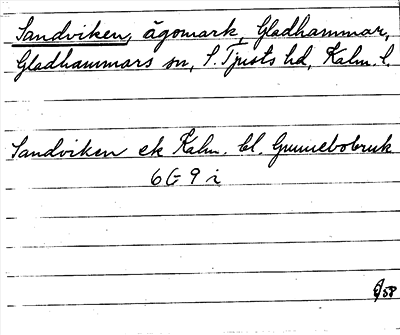 Sandviken, ägomark, Gladhammar,
Gladhammars sn, S. Tjusts hd, Kalm. l.
Sandviken ek Kalm. bl. Gunnebobruk
6 G 9 i
/58